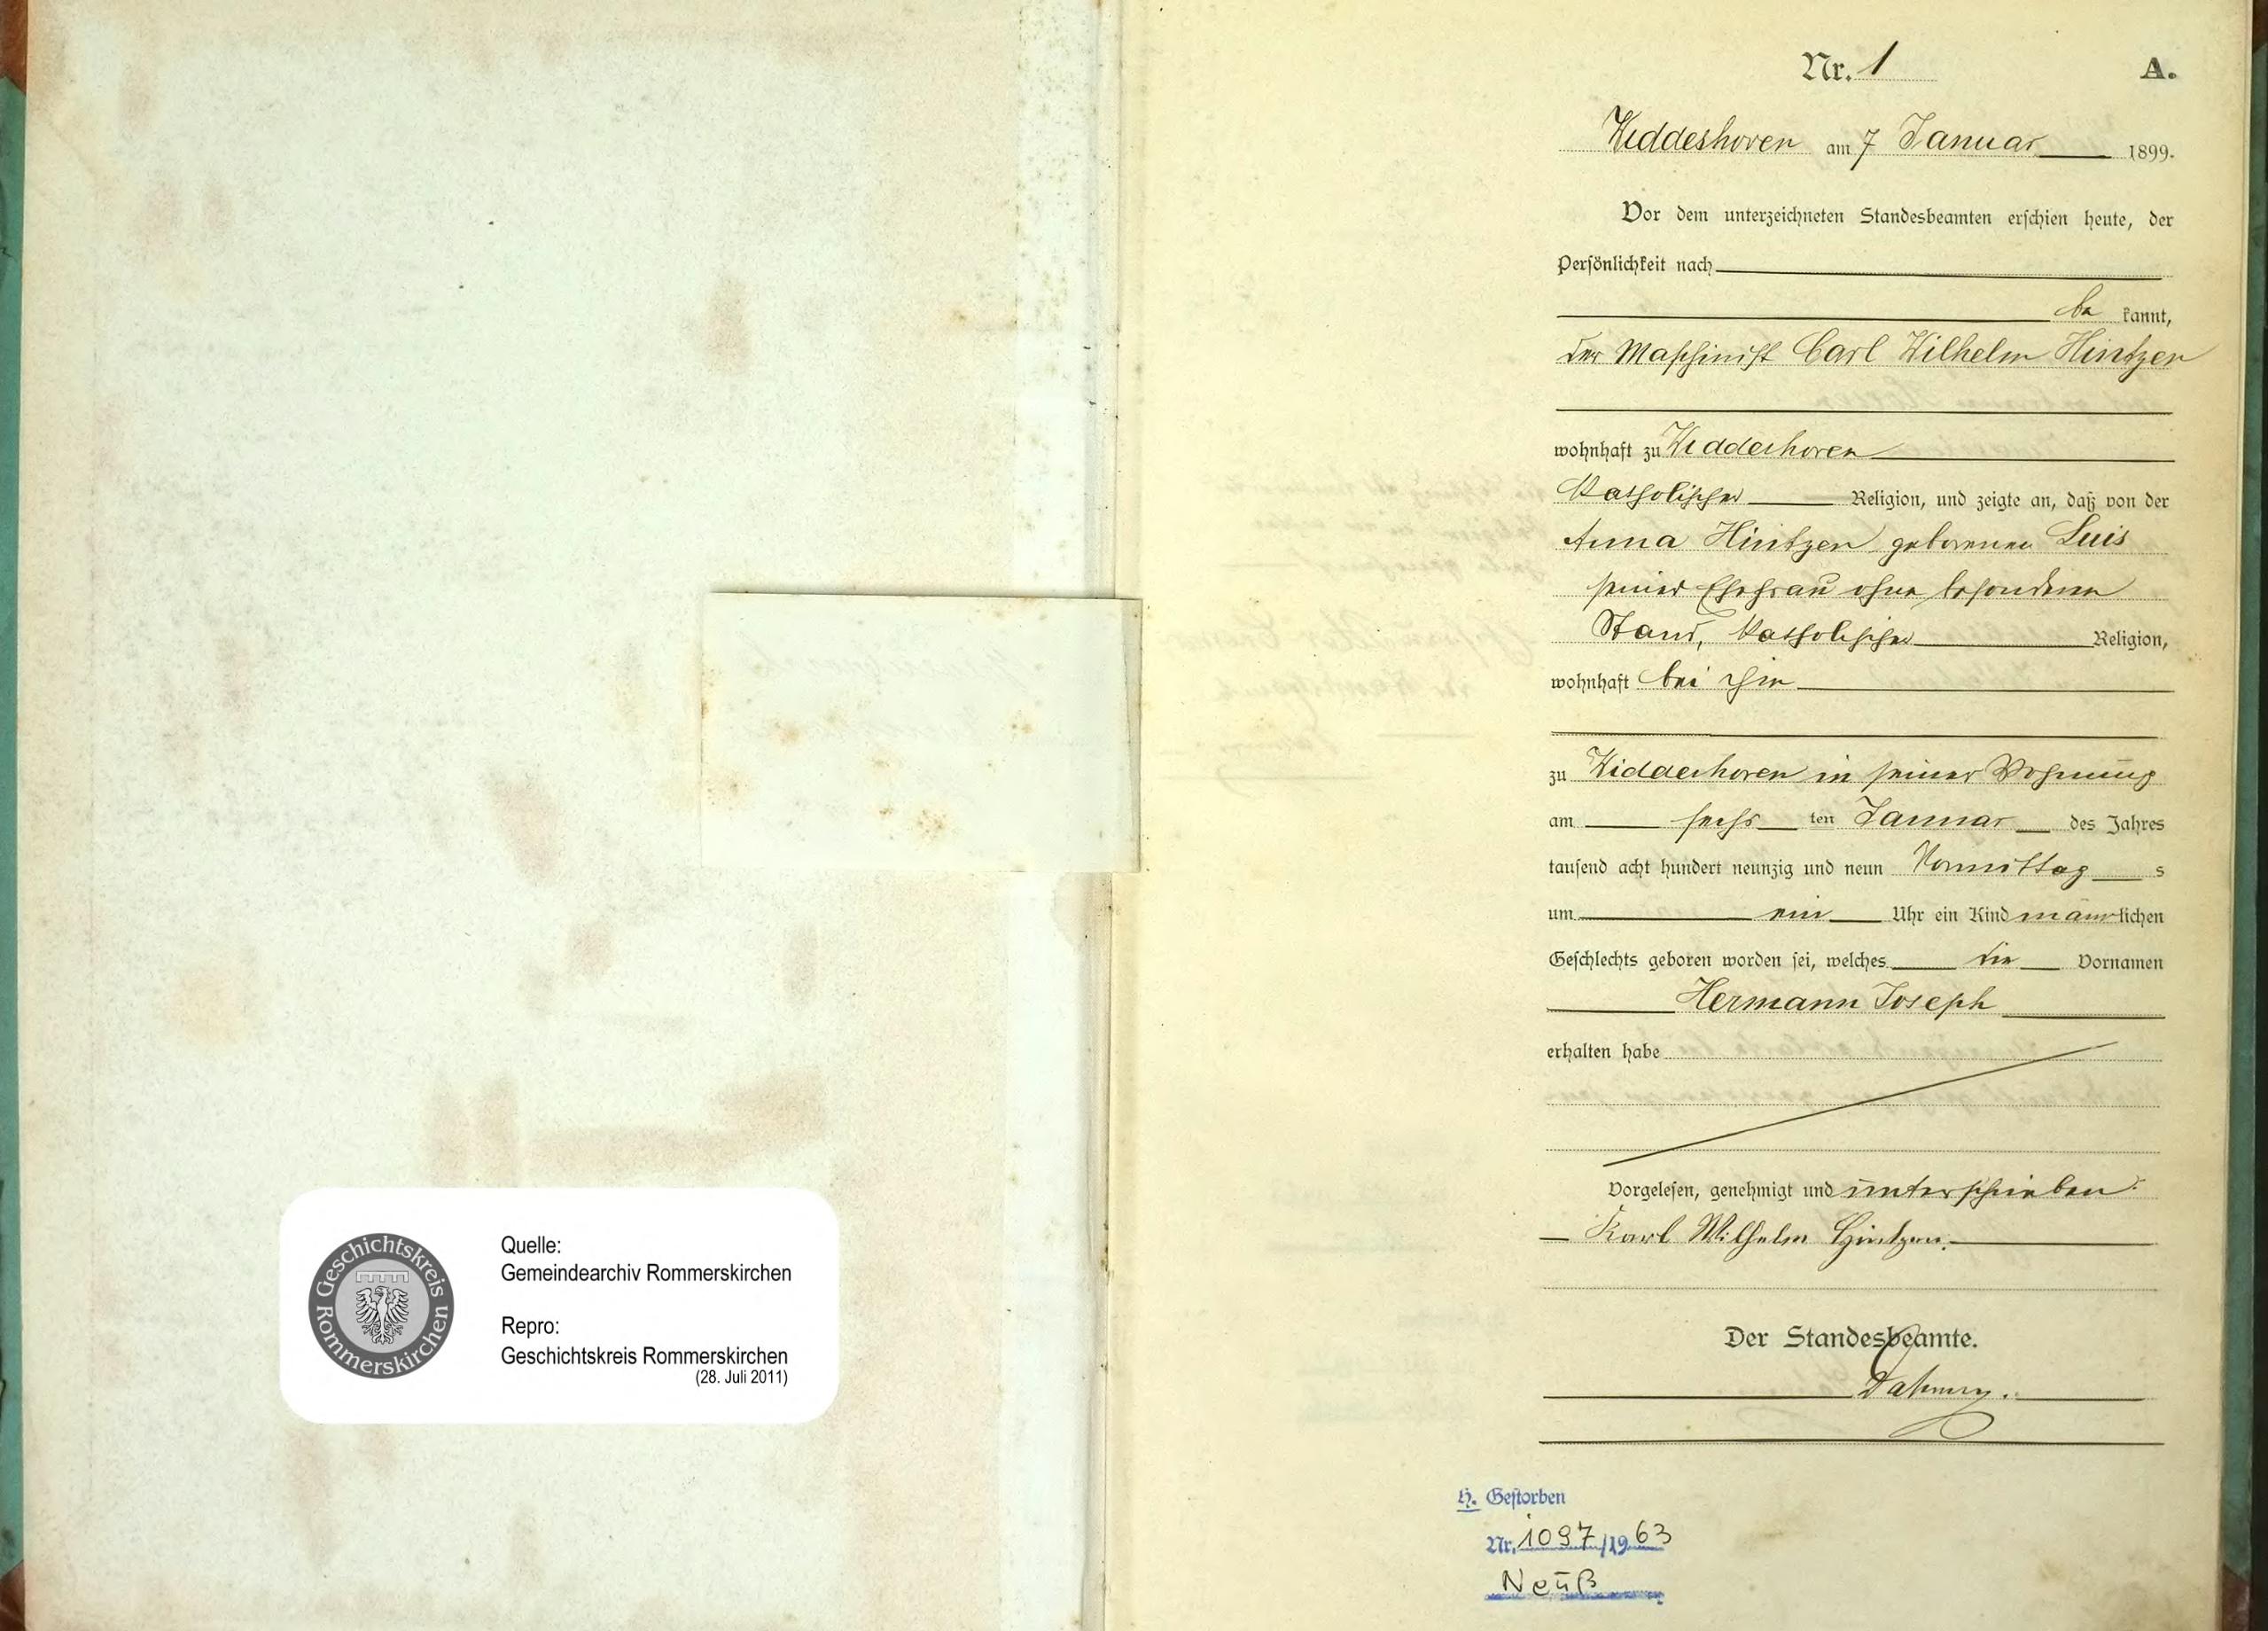 Nr. 1 A.
Widdeshoven am 7 Januar 1899.
Vor dem unterzeichneten Standesbeamten erschien heute, der
Persönlichkeit nach
be kannt,
der Maschinist Carl Wilhelm Hintzen
wohnhaft zu Widdeshoven
katholischer Religion, und zeigte an, daß von der
Anna Hintzen geborenen Luis
seiner Ehefrau ohne besonderen
Stand, katholischer Religion,
wohnhaft bei ihm
zu Widdeshoven in seiner Wohnung
am sechs ten Januar des Jahres
tausend acht hundert neunzig und neun Vormittag s
um ein Uhr ein Kind männlichen
Geschlechts geboren worden sei, welches die Vornamen
Hermann Joseph
erhalten habe
Vorgelesen, genehmigt und unterschrieben.
Karl Wilhelm Hintzen.
Der Standesbeamte.
H. Gestorben
Nr. 1097/1963
Neuß
Quelle:
Gemeindearchiv Rommerskirchen
Repro:
Geschichtskreis Rommerskirchen
(28. Juli 2011)
Geschichtskreis
Rommerskirchen